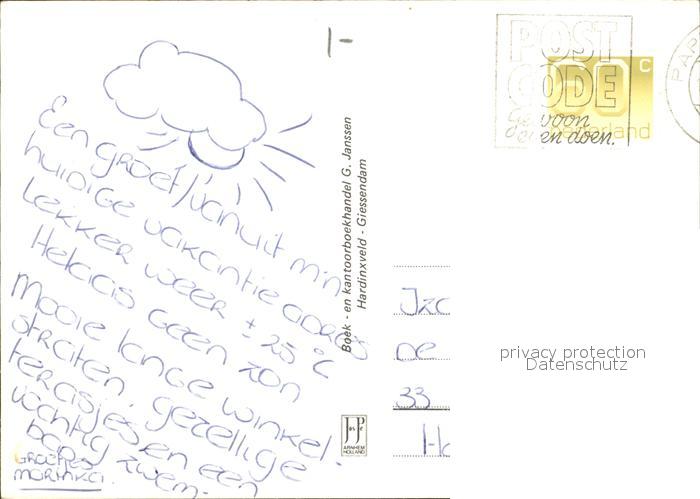 1-
POST
CODE
Gewoon
even doen.
C
Nederland
PAP
Een groet vanuit m'n
huidige vakantie adres
Lekker weer ± 25 °C
Helaas geen zon
Mooie lange winkel-
straten, gezellige
terrasjes en een
bad zwem-
GROETJES
Boek- en kantoorboekhandel G. Janssen
Hardinxveld - Giessendam
JosPé
ARNHEM
HOLLAND
De
33
privacy protection
Datenschutz